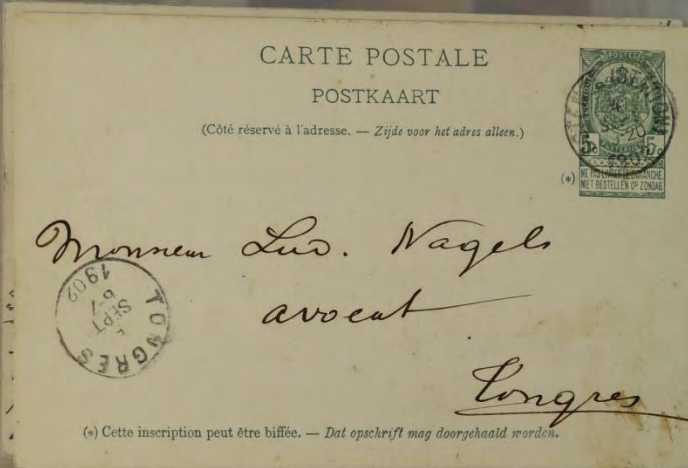 CARTE POSTALE
POSTKAART
(Côté réservé à l'adresse. — Zijde voor het adres alleen.)
5c 5c
(*)
NE PAS LIVRER LE DIMANCHE
NIET BESTELLEN OP ZONDAG
Monsieur Lud. Nagels
avocat
Tongres
TONGRES
SEPT
6-7
1902
(*) Cette inscription peut être biffée. — Dat opschrift mag doorgehaald worden.